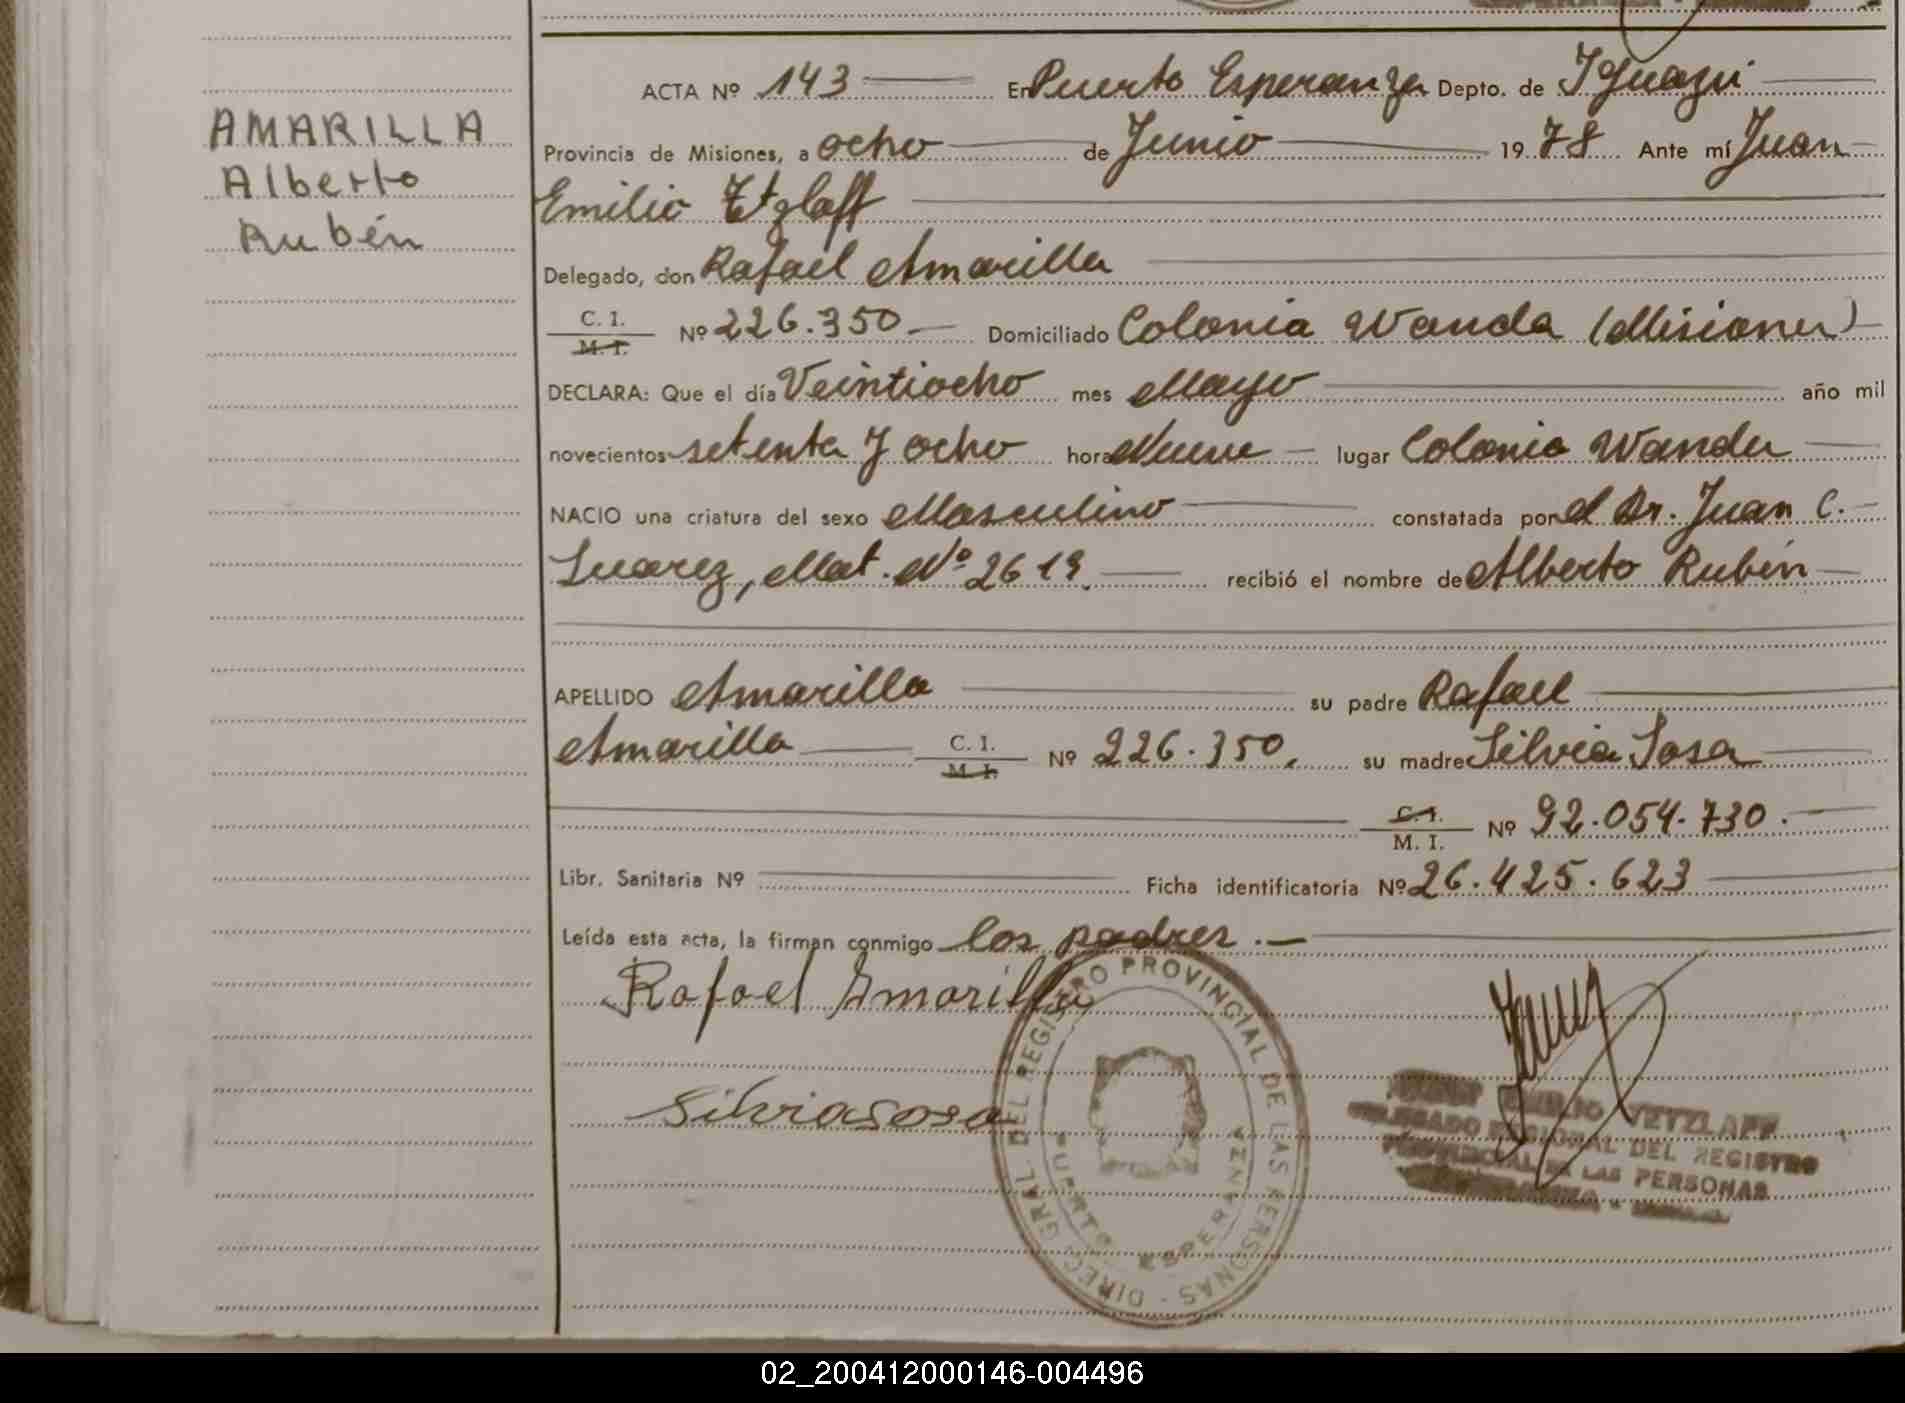 AMARILLA
Alberto
Rubén
ACTA Nº 143 En Puerto Esperanza Depto. de Iguazú
Provincia de Misiones, a ocho de Junio 19 78 Ante mí Juan
Emilio
Delegado, don Rafael Amarilla
C. I.
M. I. Nº 226.350 Domiciliado Colonia Wanda (Misiones)
DECLARA: Que el día Veintiocho mes Mayo año mil
novecientos setenta y ocho hora Nueve lugar Colonia Wanda
NACIO una criatura del sexo Masculino constatada por el Dr. Juan C.
Suarez, Mat. Nº 2619. recibió el nombre de Alberto Rubén
APELLIDO Amarilla su padre Rafael
Amarilla C. I.
M. I. Nº 226.350. su madre Silvia Sosa
C. I.
M. I. Nº 92.054.730.
Libr. Sanitaria Nº Ficha identificatoria Nº 26.425.623
Leída esta acta, la firman conmigo los padres.—
Rafael Amarilla
Silvia Sosa
DIREC. GRAL. DEL REGISTRO PROVINCIAL DE LAS PERSONAS -
PUERTO ESPERANZA
EMILIO TETZLAFF
DELEGADO REGIONAL DEL REGISTRO
PROVINCIAL DE LAS PERSONAS
02_200412000146-004496